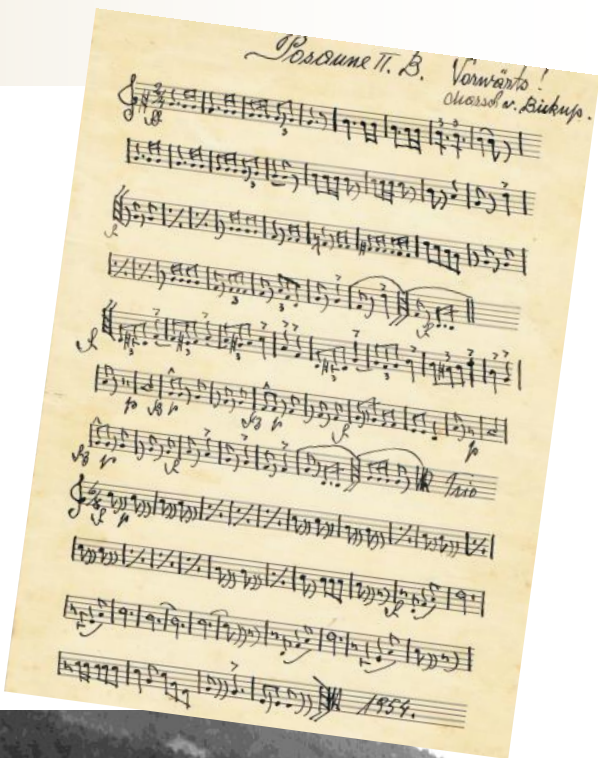 Posaune II. B. Vorwärts!
Marsch v.
Trio
1954.